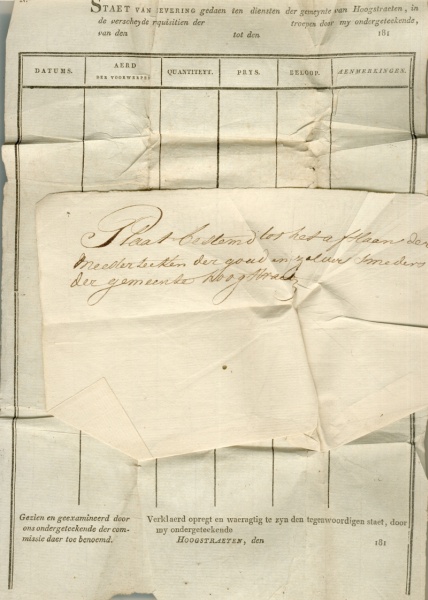 STAET VAN LEVERING gedaen ten diensten der gemeynte van Hoogstraeten, in
de verscheyde requisitien der troepen door my ondergeteekende,
van den tot den 181
DATUMS. AERD DER VOORWERPEN QUANTITEYT. PRYS. BELOOP. AENMERKINGEN.
Plaat bestemd tot het afslaan der
Meesterteeken der goud en zilver smeders
der gemeente hoogstraeten
Gezien en geexamineerd door
ons ondergeteekende der com-
missie daer toe benoemd.
Verklaerd opregt en waeragtig te zyn den tegenwoordigen staet, door
my ondergeteekende
HOOGSTRAETEN, den 181